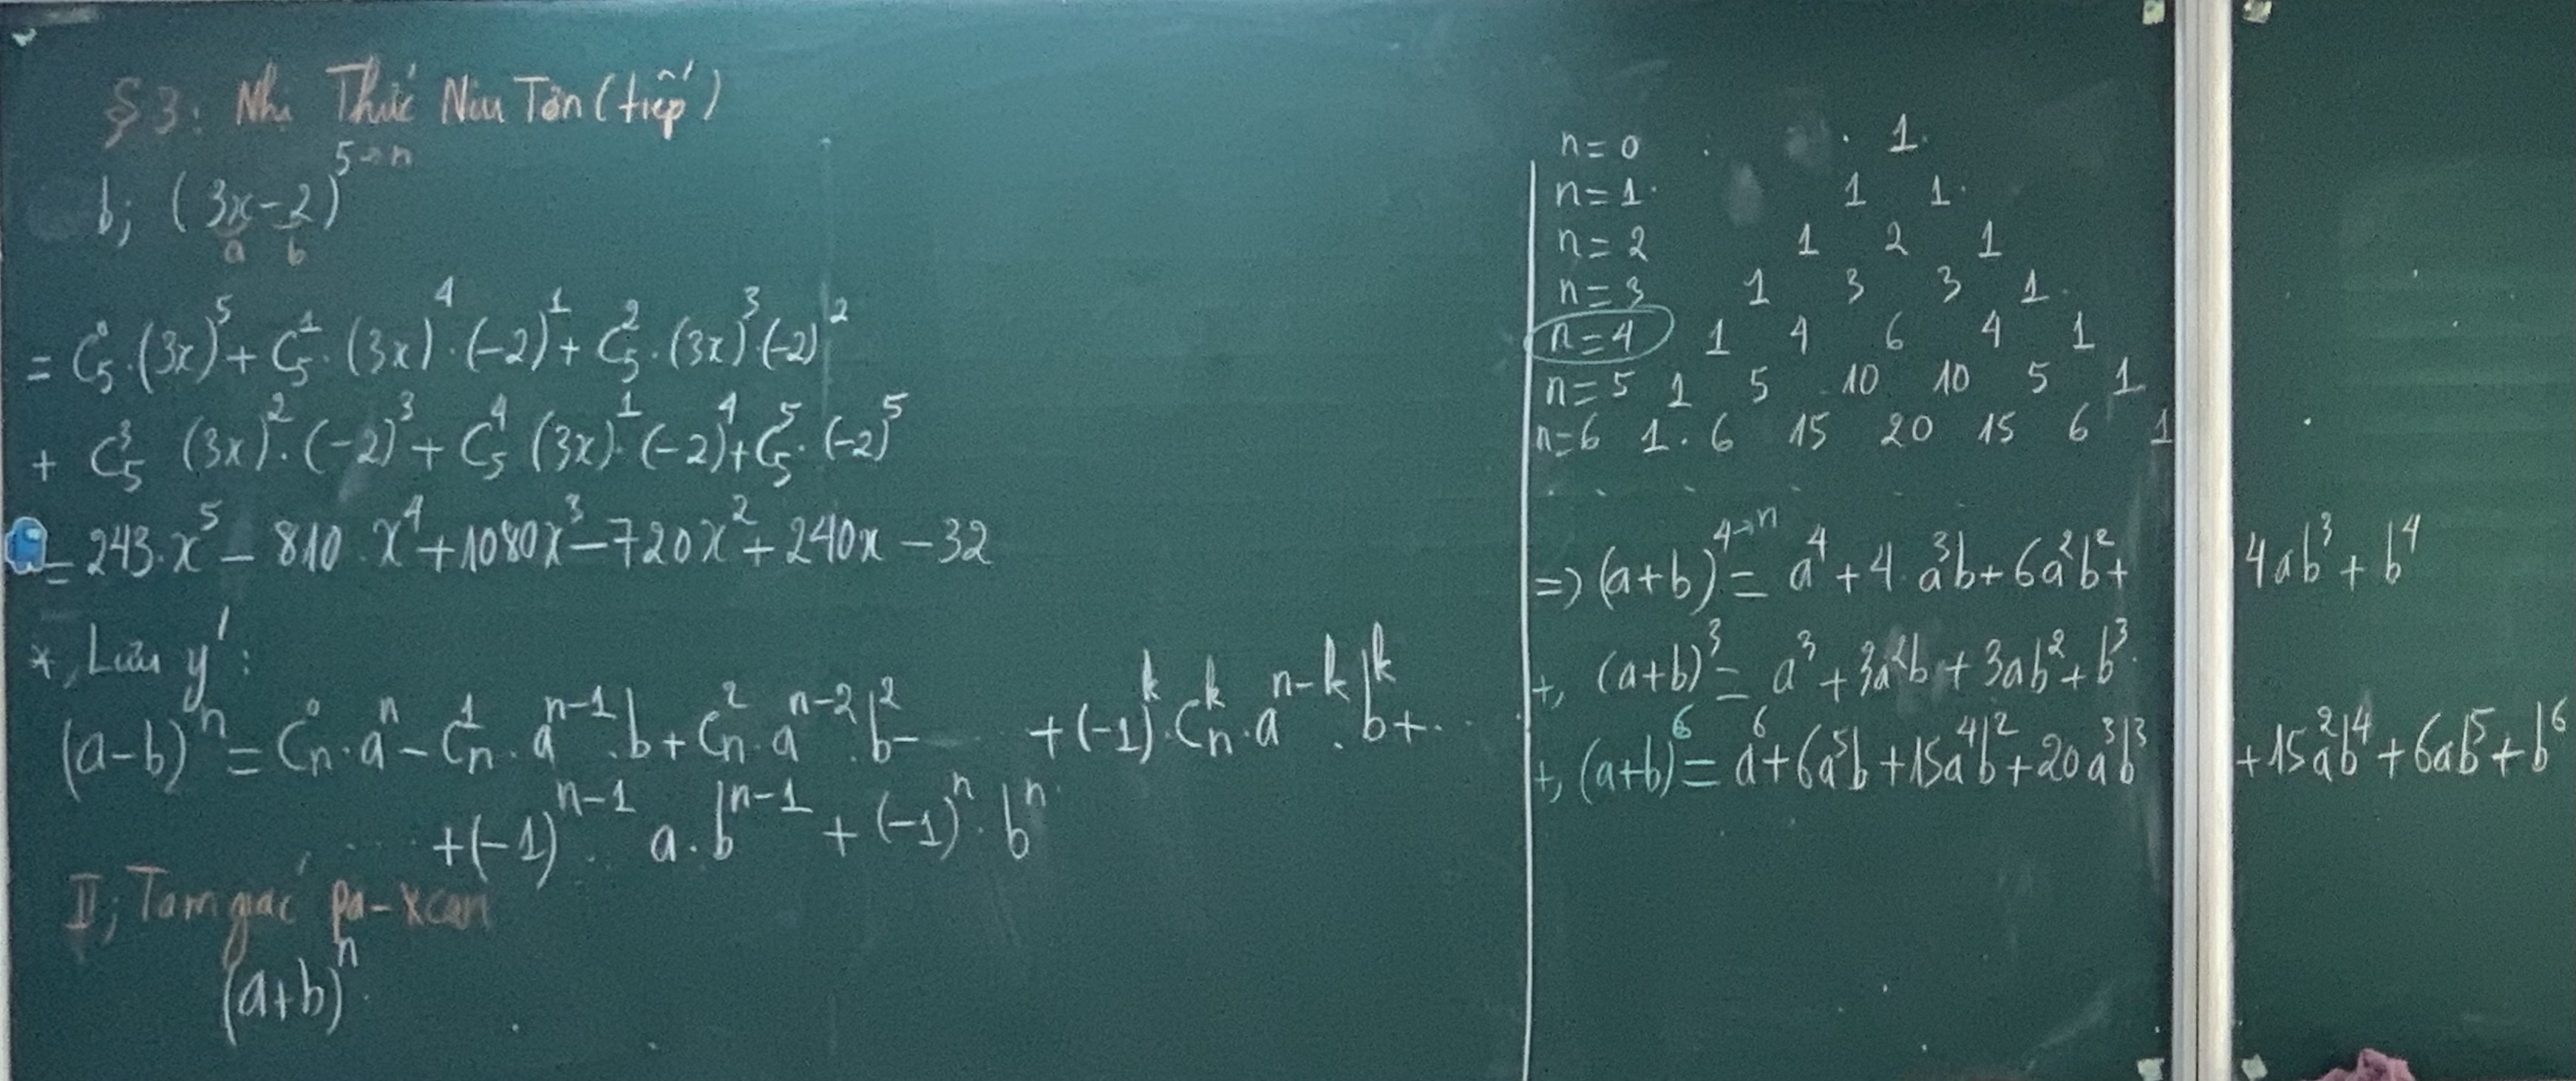 §3: Nhị Thức Niu Tơn (tiếp)
b; (3x-2)^5→n
a b
= C_5^0.(3x)^5 + C_5^1.(3x)^4.(-2)^1 + C_5^2.(3x)^3.(-2)^2
+ C_5^3 (3x)^2.(-2)^3 + C_5^4 (3x)^1.(-2)^4 + C_5^5.(-2)^5
= 243.x^5 - 810.x^4 + 1080x^3 - 720x^2 + 240x - 32
*, Lưu ý:
(a-b)^n = C_n^0.a^n - C_n^1.a^{n-1}.b + C_n^2.a^{n-2}.b^2 - .... + (-1)^k.C_n^k.a^{n-k}.b^k + ...
.... + (-1)^{n-1}. a.b^{n-1} + (-1)^n.b^n
II; Tam giác pa-xcan
(a+b)^n.
n=0 1
n=1 1 1
n=2 1 2 1
n=3 1 3 3 1
n=4 1 4 6 4 1
n=5 1 5 10 10 5 1
n=6 1 6 15 20 15 6 1
=> (a+b)^4→n = a^4 + 4.a^3b + 6a^2b^2 + 4ab^3 + b^4
+, (a+b)^3 = a^3 + 3a^2b + 3ab^2 + b^3.
+, (a+b)^6 = a^6 + 6a^5b + 15a^4b^2 + 20a^3b^3 + 15a^2b^4 + 6ab^5 + b^6